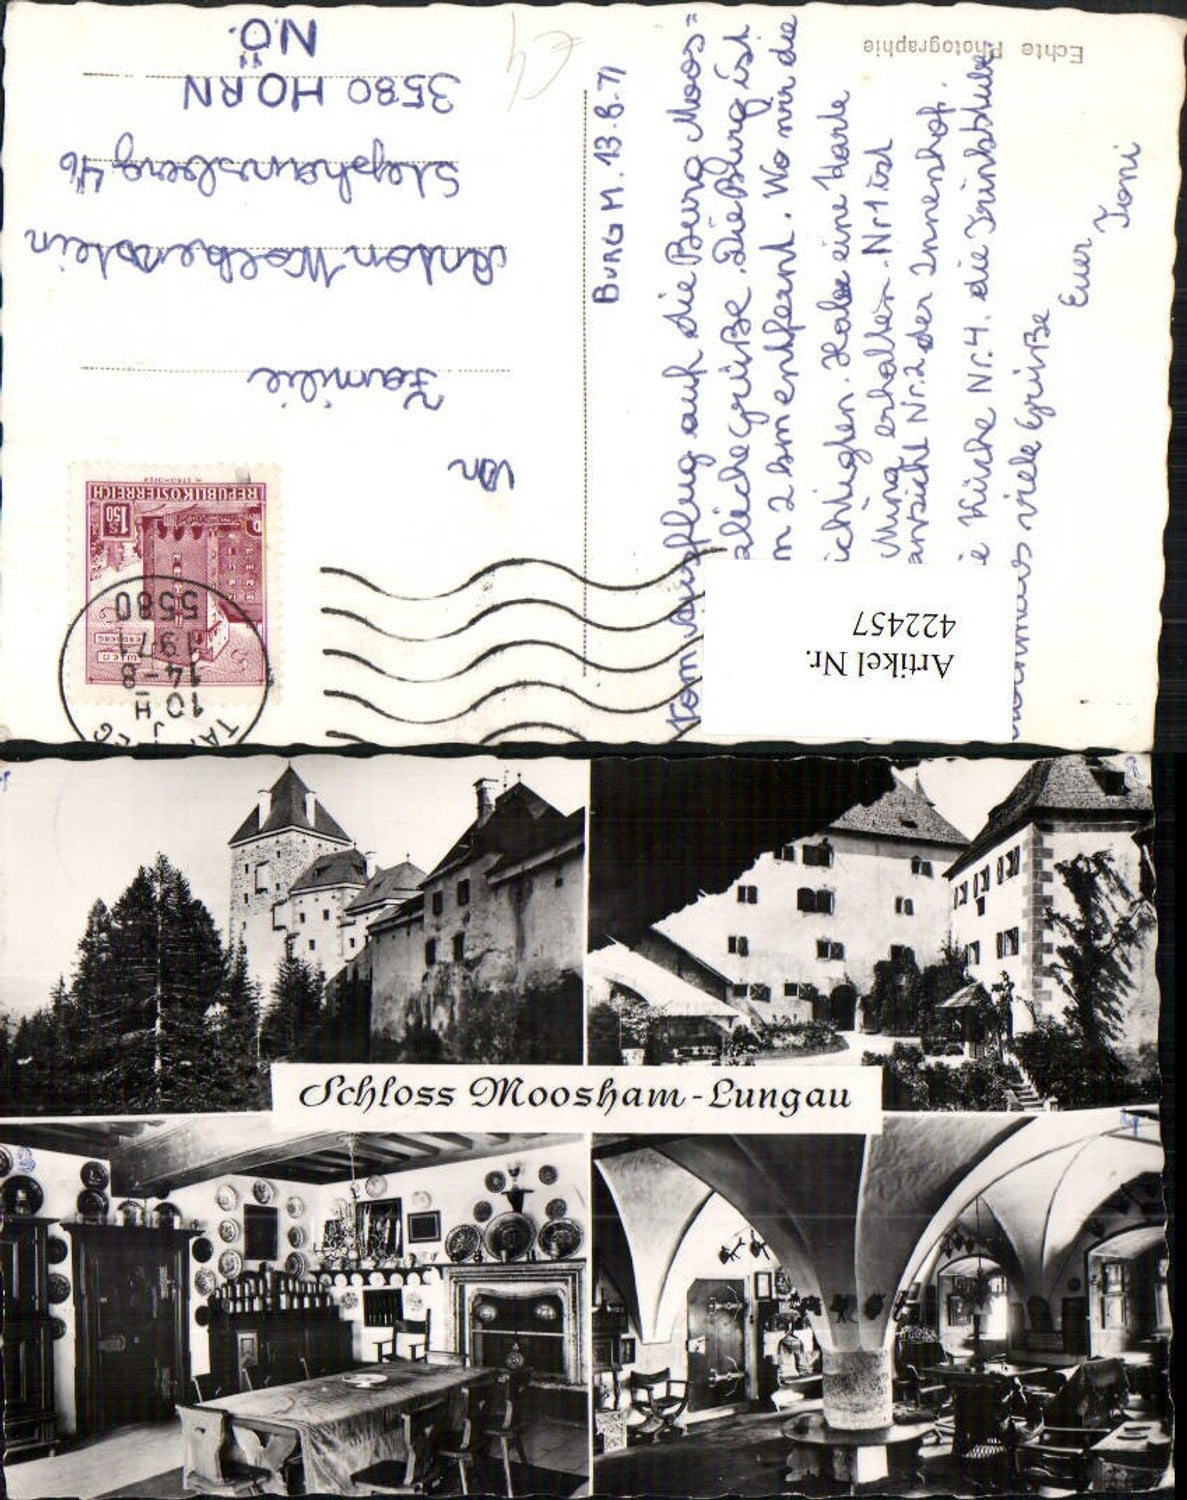 Echte Photographie
BURG M. 13.8.71
Vom Ausflug auf die Burg Moos=
zliche Grüße. Die Burg ist
m 2 km entfernt. Wo wir die
ichtigten. Habe eine Karte
erhalten. Nr 1 ist
ansicht Nr. 2 der Innenhof.
e Küche Nr. 4. die Trinkstube
viele Grüße
Euer
Toni
An
Familie
Anton
Stephansberg 46
3580 HORN
N.Ö.
REPUBLIK ÖSTERREICH
S 1.50
WIEN
ERDBERG
10 H
14-8
1971
5580
Artikel Nr.
422457
Schloss Moosham-Lungau
1
2
3
4